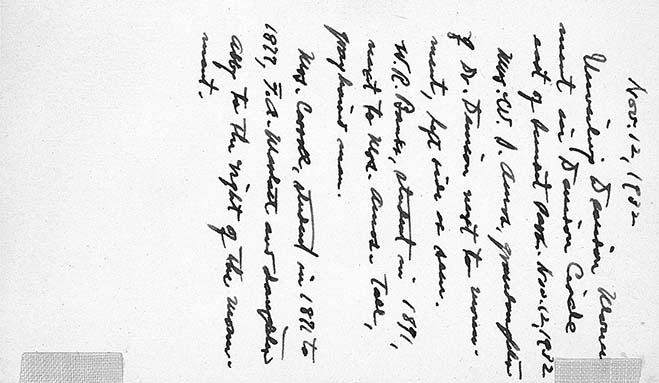 Nov. 12, 1932
Unveiling Denison Monu
ment in Denison Circle
east of Nov. 12, 1932
Mrs. W. D. Ames, granddaughter
of Dr. Denison next to monu-
ment, left side as seen.
W. R. Banks, student in 1891,
next to Mrs. Ames. Tall,
grayhaired man.
Mrs. student in 1876 to
1877, F. A. and daughter
Abby to the right of the monu-
ment.